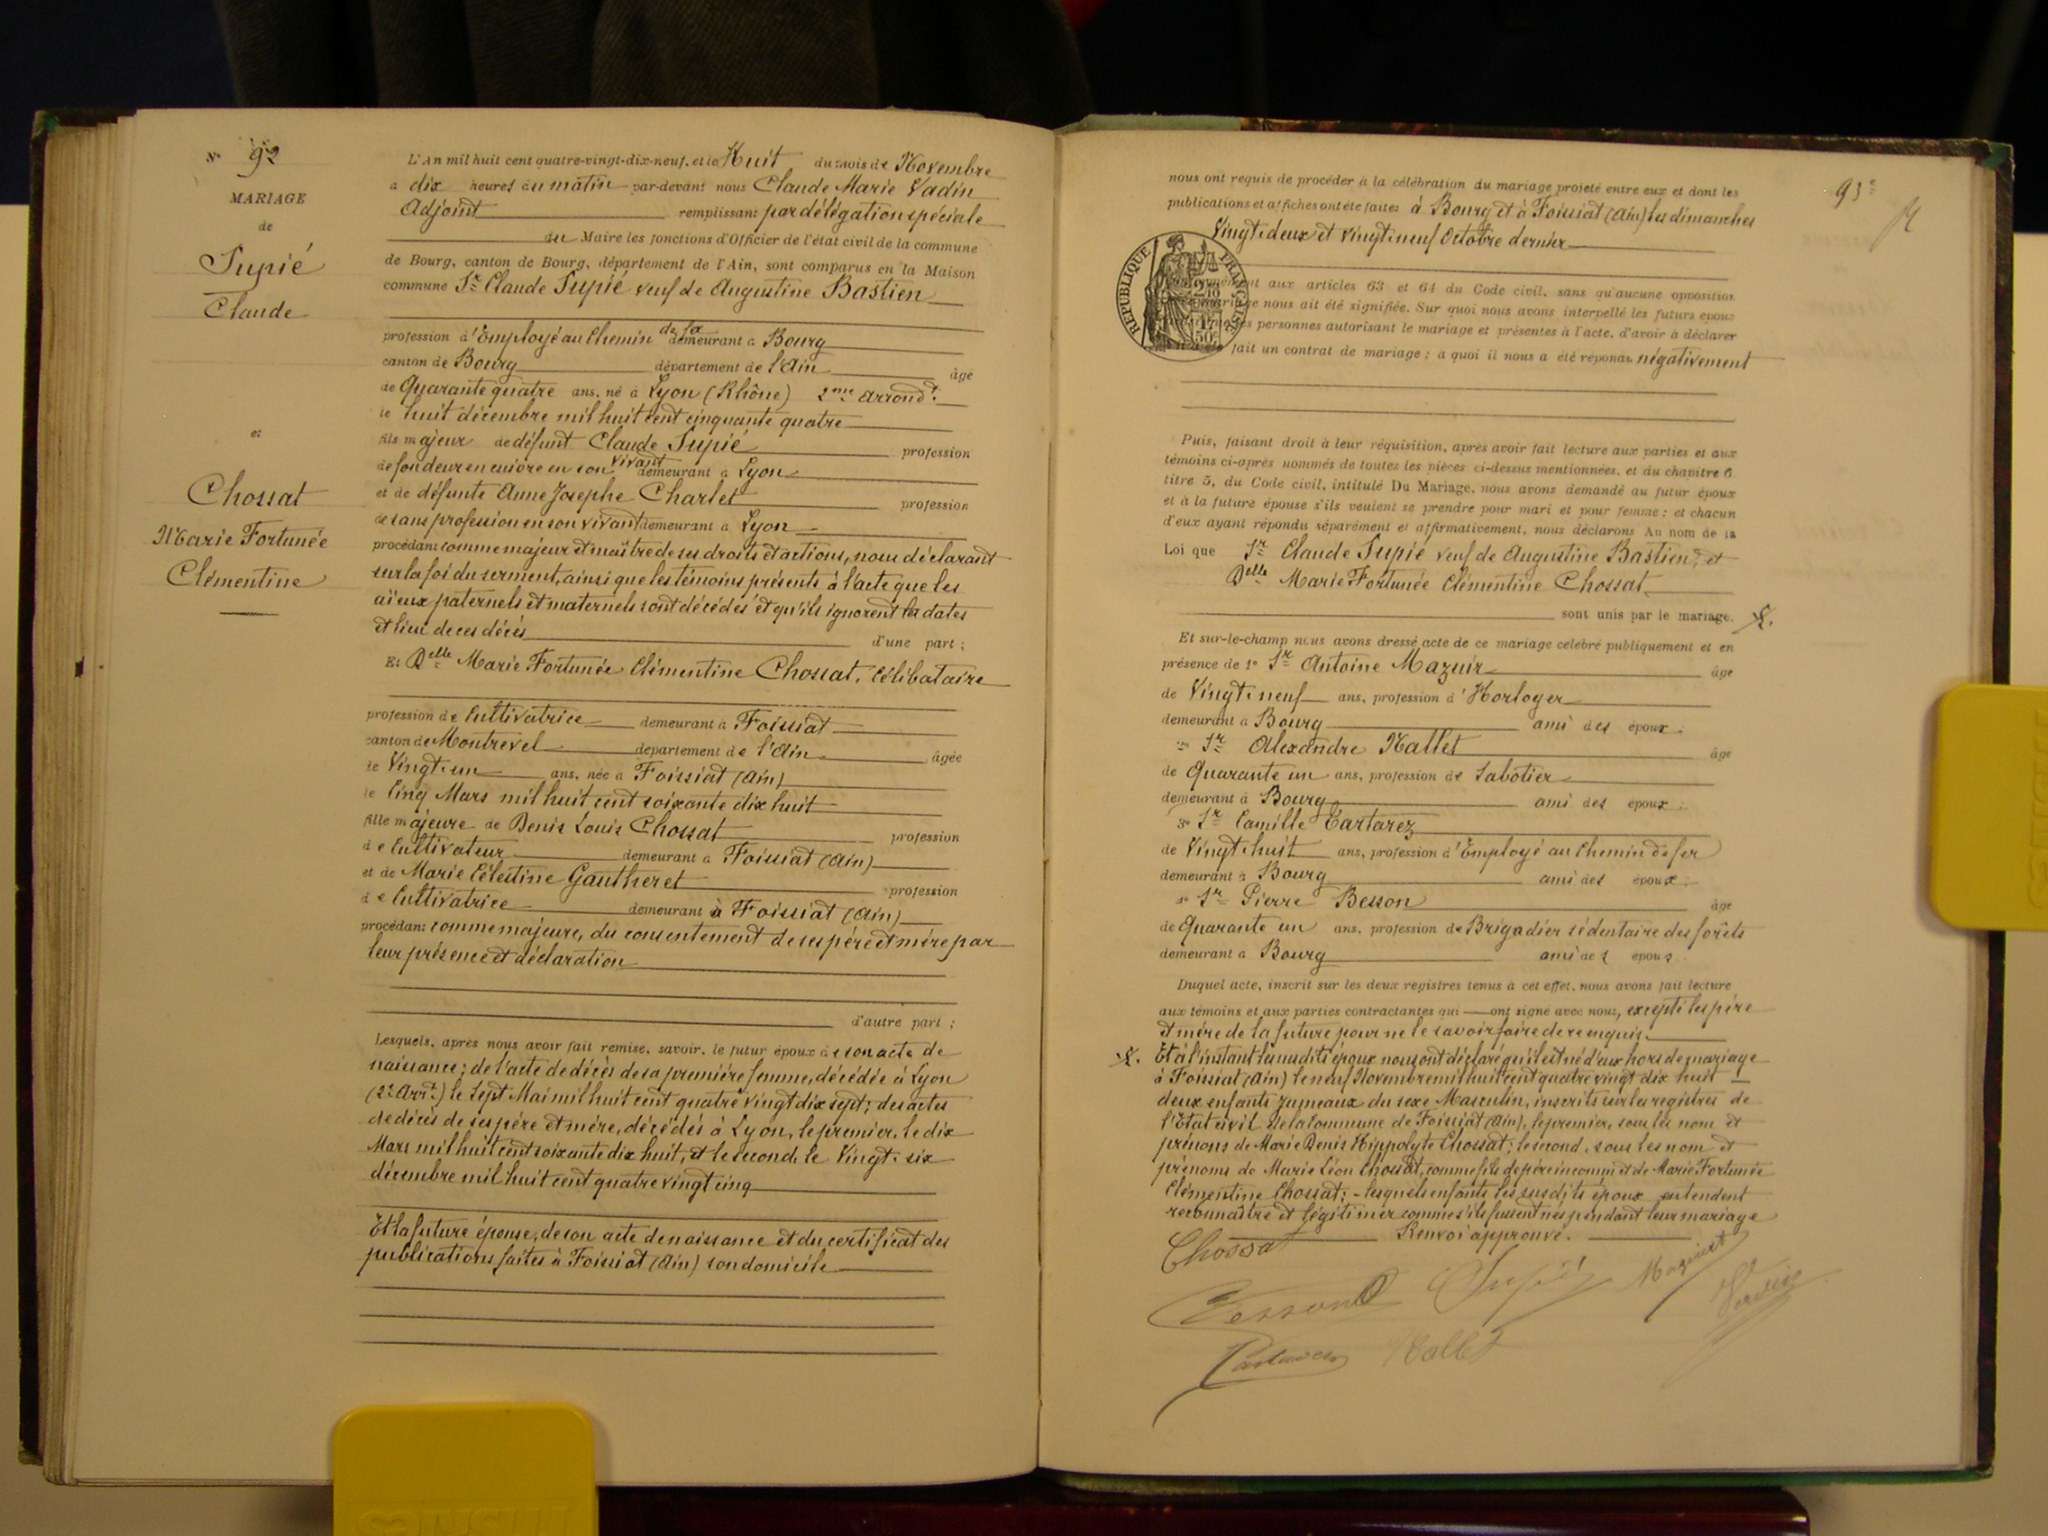 N° 92
MARIAGE
de
Supié
Claude
et
Chossat
Marie Fortunée
Clémentine
L'An mil huit cent quatre-vingt-dix-neuf, et le Huit du mois de Novembre
à dix heures du matin par-devant nous Claude Marie Vadin
Adjoint remplissant par délégation spéciale
du Maire les fonctions d'Officier de l'état civil de la commune
de Bourg, canton de Bourg, département de l'Ain, sont comparus en la Maison
commune Sr Claude Supié veuf de Augustine Bastien
profession d'Employé au Chemin de fer demeurant à Bourg
canton de Bourg département de l'Ain âgé
de Quarante quatre ans, né à Lyon (Rhône) 2me arrondt
le huit décembre mil huit cent cinquante quatre
fils majeur de défunt Claude Supié profession
de fondeur en cuivre en son vivant demeurant à Lyon
et de défunte Anne Josephe Charlet profession
de sans profession en son vivant demeurant à Lyon
procédant comme majeur et maître de ses droits et actions, nous déclarant
sur la foi du serment, ainsi que les témoins présents à l'acte que les
aïeux paternels et maternels sont décédés et qu'ils ignorent les dates
et lieu de ces décès d'une part ;
Et Delle Marie Fortunée Clémentine Chossat, célibataire
profession de Cultivatrice demeurant à Foissiat
canton de Montrevel département de l'Ain âgée
de Vingt-un ans, née à Foissiat (Ain)
le Cinq Mars mil huit cent soixante dix huit
fille majeure de Denis Louis Chossat profession
de Cultivateur demeurant à Foissiat (Ain)
et de Marie Célestine Gautheret profession
de Cultivatrice demeurant à Foissiat (Ain)
procédant comme majeure, du consentement de ses père et mère par
leur présence et déclaration
d'autre part ;
Lesquels, après nous avoir fait remise, savoir, le futur époux de son acte de
naissance ; de l'acte de décès de sa première femme, décédée à Lyon
(2e Arrt) le Sept Mai mil huit cent quatre vingt dix sept ; des actes
de décès de ses père et mère, décédés à Lyon, le premier, le dix
Mars mil huit cent soixante dix huit, et le second, le Vingt-six
décembre mil huit cent quatre vingt cinq
Et la future épouse, de son acte de naissance et du certificat des
publications faites à Foissiat (Ain) son domicile
93e
nous ont requis de procéder à la célébration du mariage projeté entre eux et dont les
publications et affiches ont été faites à Bourg et à Foissiat (Ain) les dimanches
Vingt-deux et Vingt-neuf Octobre dernier
RÉPUBLIQUE FRANÇAISE
aux articles 63 et 64 du Code civil, sans qu'aucune opposition
nous ait été signifiée. Sur quoi nous avons interpellé les futurs époux
personnes autorisant le mariage et présentes à l'acte, d'avoir à déclarer
fait un contrat de mariage ; à quoi il nous a été répondu négativement
Puis, faisant droit à leur réquisition, après avoir fait lecture aux parties et aux
témoins ci-après nommés de toutes les pièces ci-dessus mentionnées, et du chapitre 6
titre 5, du Code civil, intitulé Du Mariage, nous avons demandé au futur époux
et à la future épouse s'ils veulent se prendre pour mari et pour femme ; et chacun
d'eux ayant répondu séparément et affirmativement, nous déclarons Au nom de la
Loi que Sr Claude Supié veuf de Augustine Bastien, et
Delle Marie Fortunée Clémentine Chossat
sont unis par le mariage.
Et sur-le-champ nous avons dressé acte de ce mariage célébré publiquement et en
présence de 1° Sr Antoine Mazuir âgé
de Vingt-neuf ans, profession d'Horloger
demeurant à Bourg ami des époux ;
2° Sr Alexandre Nallet âgé
de Quarante un ans, profession de Sabotier
demeurant à Bourg ami des époux ;
3° Sr Camille Tartarez
de Vingt-huit ans, profession d'Employé au Chemin de fer
demeurant à Bourg ami des époux ;
4° Sr Pierre Besson âgé
de Quarante un ans, profession de Brigadier sédentaire des forêts
demeurant à Bourg ami des époux
Duquel acte, inscrit sur les deux registres tenus à cet effet, nous avons fait lecture
aux témoins et aux parties contractantes qui ont signé avec nous, excepté les père
et mère de la future pour ne le savoir faire de ce enquis.
Et à l'instant les susdits époux nous ont déclaré qu'il est né d'eux hors de mariage
à Foissiat (Ain) le neuf Novembre mil huit cent quatre vingt dix huit
deux enfants jumeaux du sexe Masculin, inscrits sur les registres de
l'Etat civil de la Commune de Foissiat (Ain), le premier, sous les nom et
prénoms de Marie Denis Hippolyte Chossat ; le second, sous les nom et
prénoms de Marie Léon Chossat, comme fils de père inconnu et de Marie Fortunée
Clémentine Chossat ; - lesquels enfants les susdits époux entendent
reconnaître et légitimer comme s'ils fussent nés pendant leur mariage
Renvoi approuvé.
Chossat
Besson Supié Mazuir Vadin
Tartarez Nallet